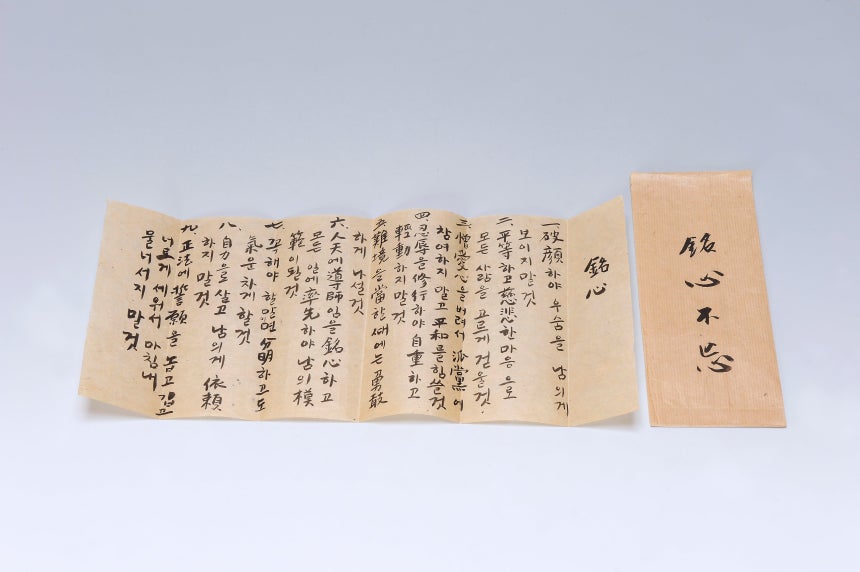 銘心不忘
銘心
一. 破顔하야 우숨을 남의게
보이지말것
二. 平等하고 慈悲한마음으로
모든 사람을 고르게 건올것
三. 憎愛心을버려서 派黨에
참여하지 말고 平和를힘쓸것
四. 忍辱을修行하야 自重하고
輕動하지말것
五. 難境을當한ᄯᅢ에는勇敢
하게 나설것
六. 人天에導師임을銘心하고
모든 일에率先하야 남의模
範이될것
七. 꼭해야 할말면 分明하고도
氣운차게할것
八. 自力으로 살고 남의게 依賴
하지말것
九. 正法에誓願을 놉고 깁고
너르게 세워서 마침내
물너서지말것